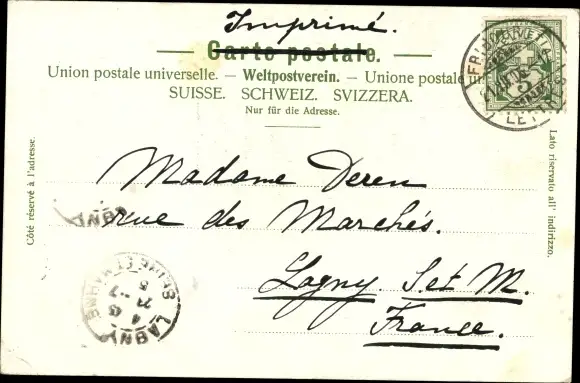 Imprimé.
Carte postale.
Union postale universelle. — Weltpostverein. — Unione postale
SUISSE. SCHWEIZ. SVIZZERA.
Nur für die Adresse.
Côté réservé à l'adresse.
Lato riservato all' indirizzo.
Madame Deren
rue des Marchés.
Lagny. S. et M.
France.
LAGNY
LAGNY SEINE-ET-MARNE